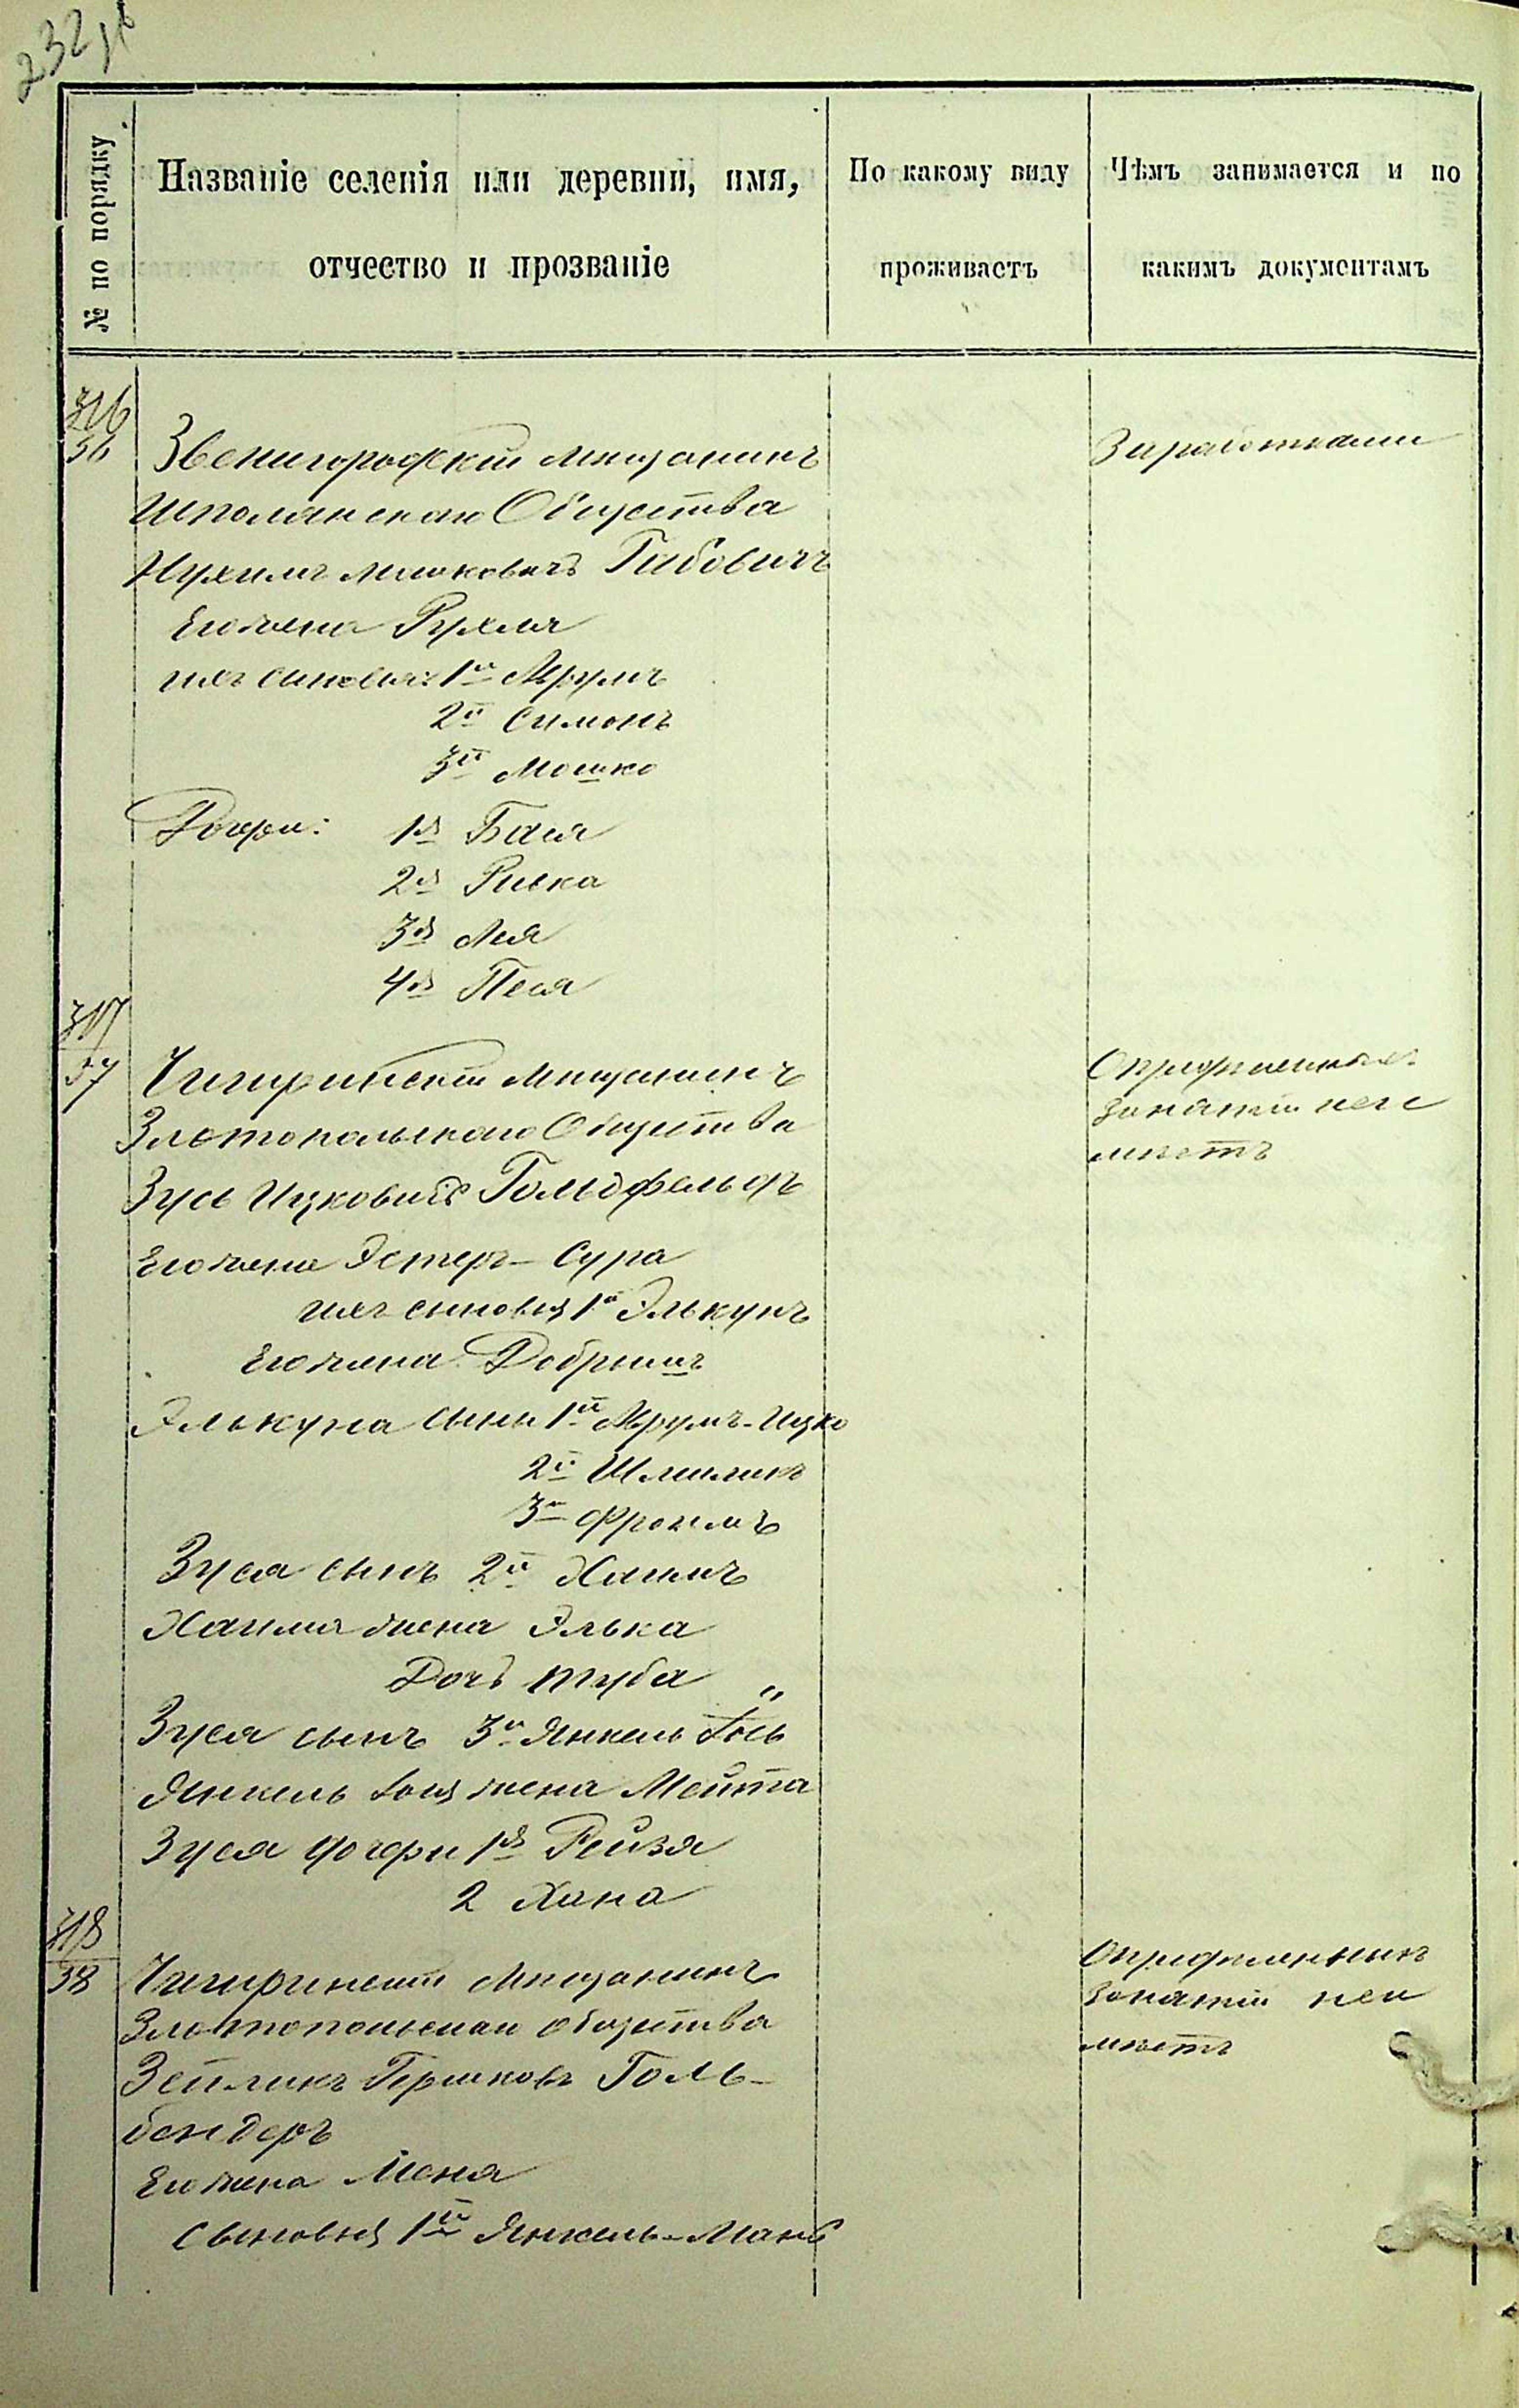 232 об
№ по порядку
Названіе селенія или деревни, имя,
отчество и прозваніе
По какому виду
проживаетъ
Чѣмъ занимается и по
какимъ документамъ
316
56
Звенигородскій мѣщанинъ
Шполянскаго Общества
Нухимъ Мошковичъ
Его жена Рухля
ихъ сыновья: 1й Мрумъ
2й Симонъ
3й Мошко
Дочери: 1я Бася
2я Ривка
3я Лея
4я Песя
Заработками
317
57
Чигиринскій мѣщанинъ
Златопольскаго Общества
Зусь Ицковичъ Гольдфельдъ
Его жена Эстеръ-Сура
ихъ сыновья 1й Элькунъ
Его жена Добрышъ
Элькуна сыны 1й Мрумъ-Ицко
2й Шмиликъ
3й Фроимъ
Зуся сынъ 2й Хаимъ
Хаима жена Элька
Дочь Туба "
Зуся сынъ 3й Янкель Іось
Янкель Іося жена Мейта
Зуся дочери 1я Рейзя
2 Хана
Опредѣленныхъ
занятій не и
мѣетъ
318
58
Чигиринскій мѣщанинъ
Златопольскаго общества
Зейликъ Гершковъ Голь-
бендеръ
Его жена Меня
сыновья 1й Янкель-Мань
Опредѣленныхъ
занятій не и
мѣетъ